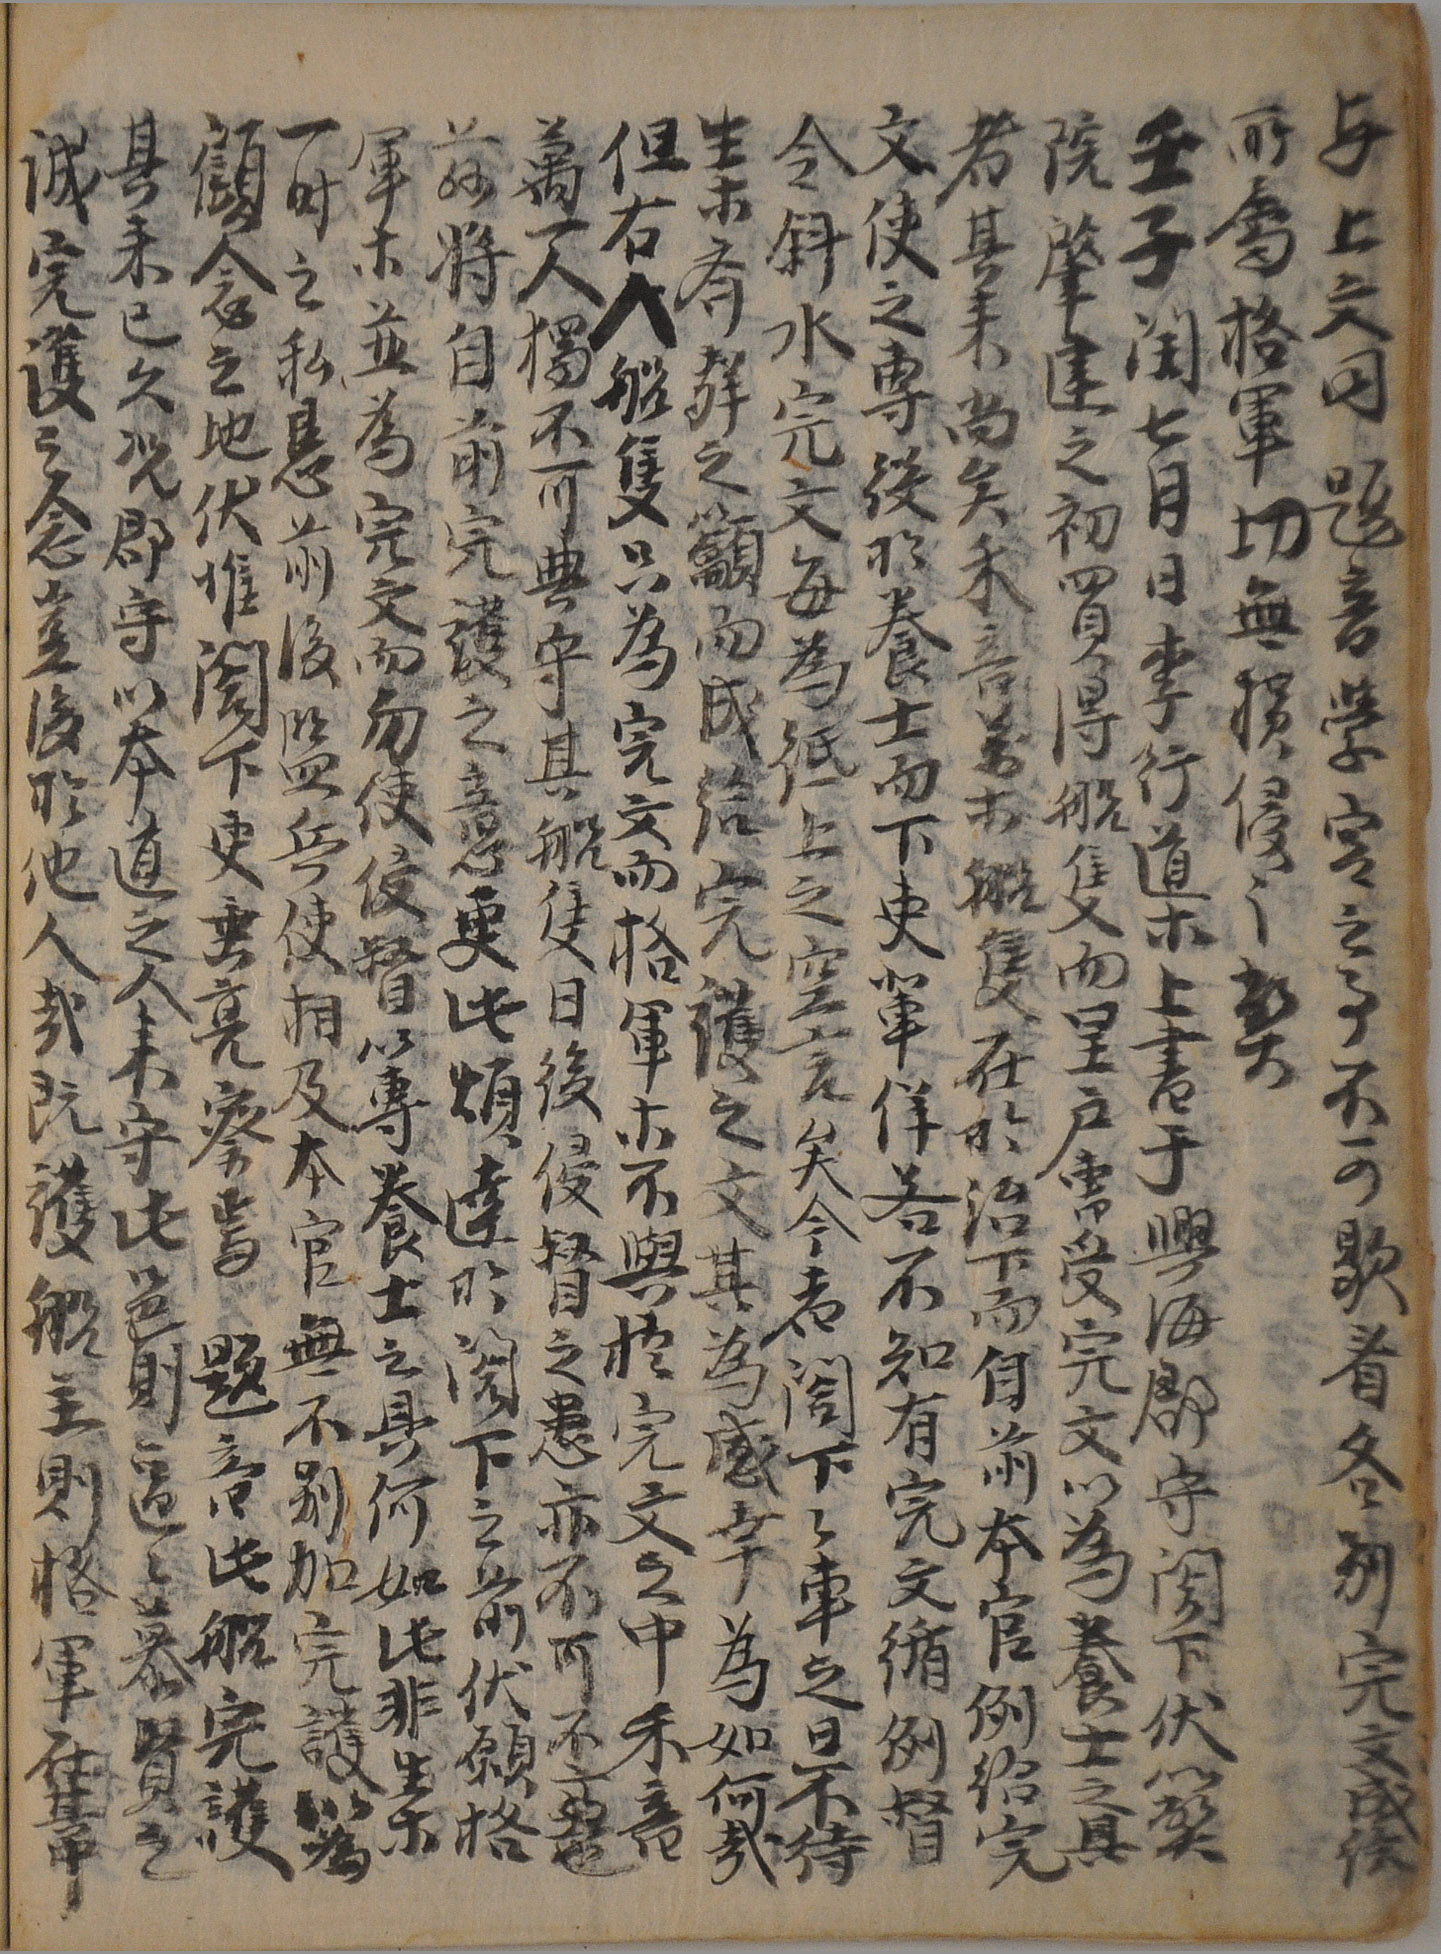 与上文同 題音學宮之事不可歇看各別完文成給
所屬格軍切無損侵之弊
壬子閏七月日李行道等上書于興海郡守閤下伏以弊
院肇建之初買得船隻而呈戶曹受完文以爲養士之具
者其來尚矣禾音島等船隻在於治下而自前本官例給完
文使之專役於養士而下吏輩佯若不知有完文循例督
令斜水完文每爲紙上之空言矣今者閤下下車之日不待
生等齊辭之籲而成給完護之文其爲感幸爲如何哉
但右人船隻只爲完文而格軍等不與於完文之中禾音
萬一人獨不可典守其船隻日後侵督之患亦不可不慮
玆將自前完護之意更此煩達於閤下之前伏願格
軍等並爲完文而勿使侵督以專養士之具何如此非生等
一時之私患前後監兵使相及本官無不別加完護以爲
顧念之地伏惟閤下更垂亮察焉 題音此船完護
其來已久況郡守以本道之人來守此邑則區區慕賢之
誠完護之念豈後於他人哉既護船主則格軍在其中